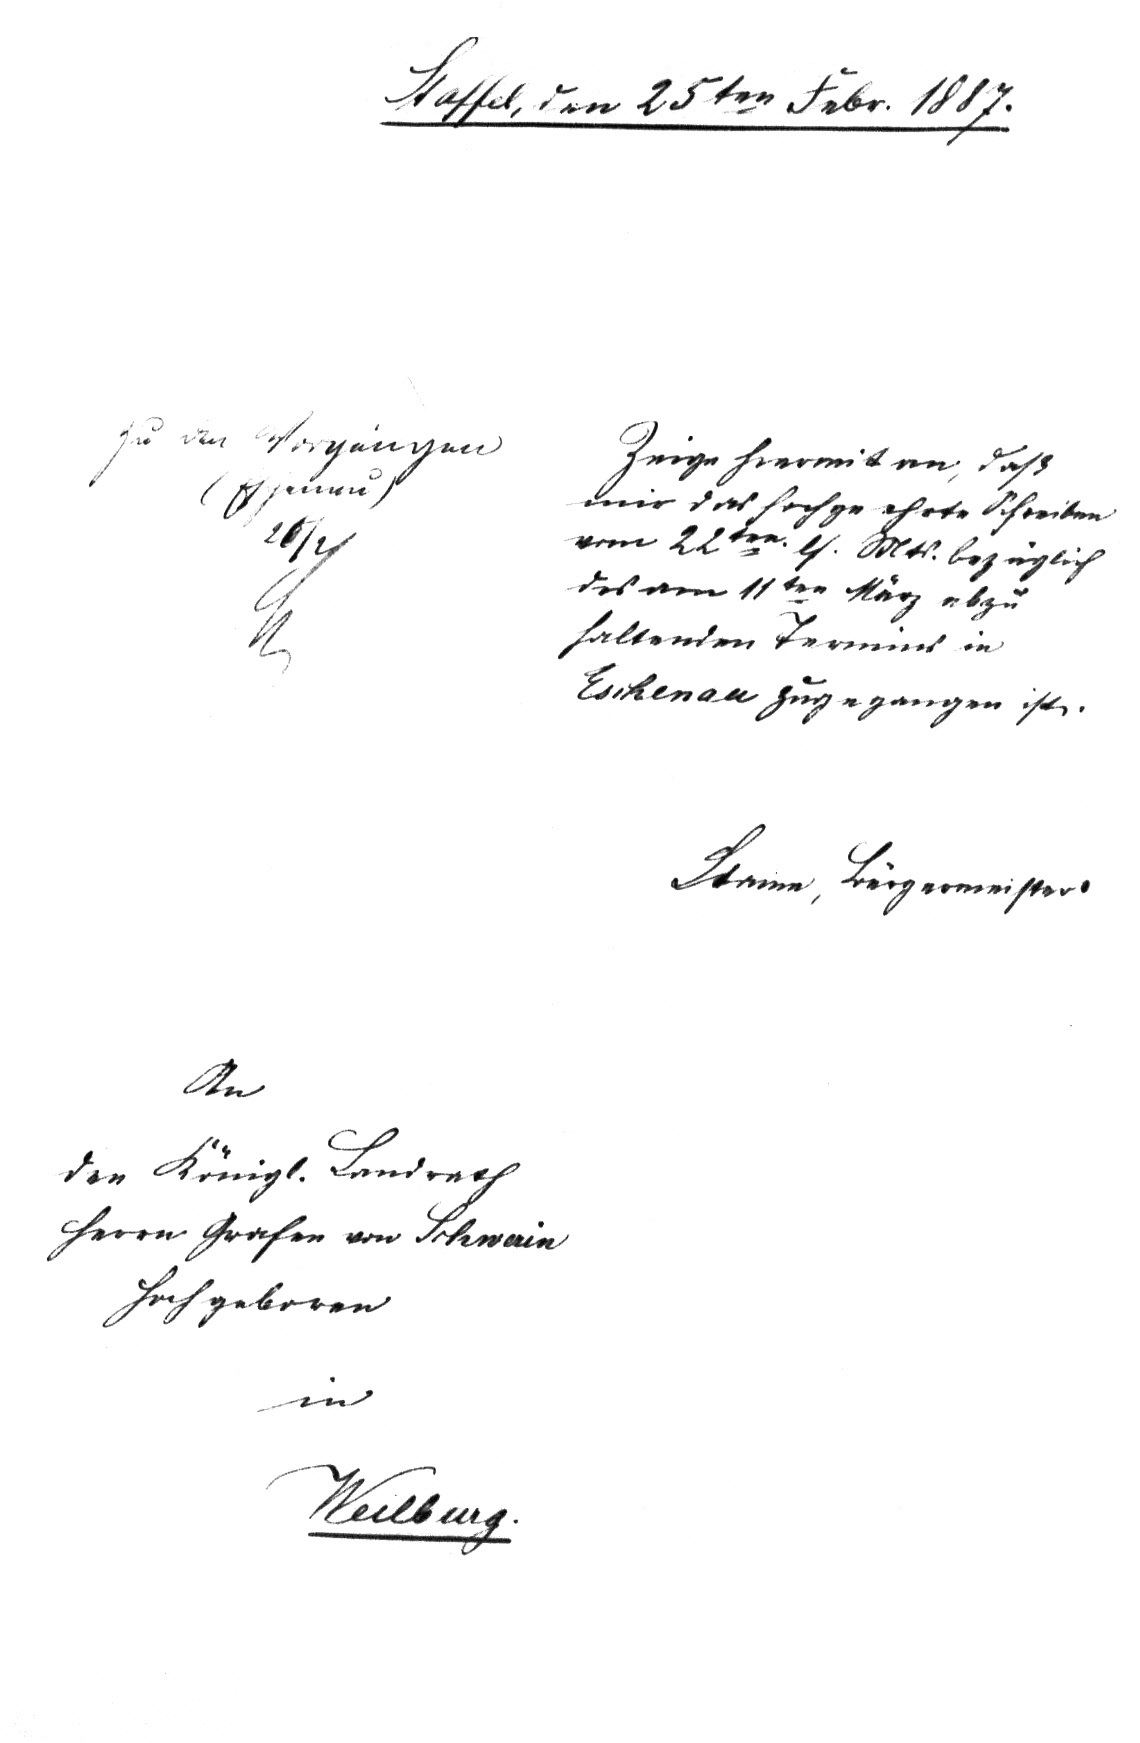 Staffel, den 25ten Febr. 1887.
Zu den Vorgängen
(Eschenau)
26/2
Zeige hiermit an, daß
mir das hochge ehrte Schreiben
vom 22ten. lf. Mts. bezüglich
des am 11ten März abzu
haltenden Termins in
Eschenau zugegangen ist.
Bürgermeister
An
den Königl. Landrath
Herrn Grafen von Schwerin
Hochgeboren
in
Weilburg.